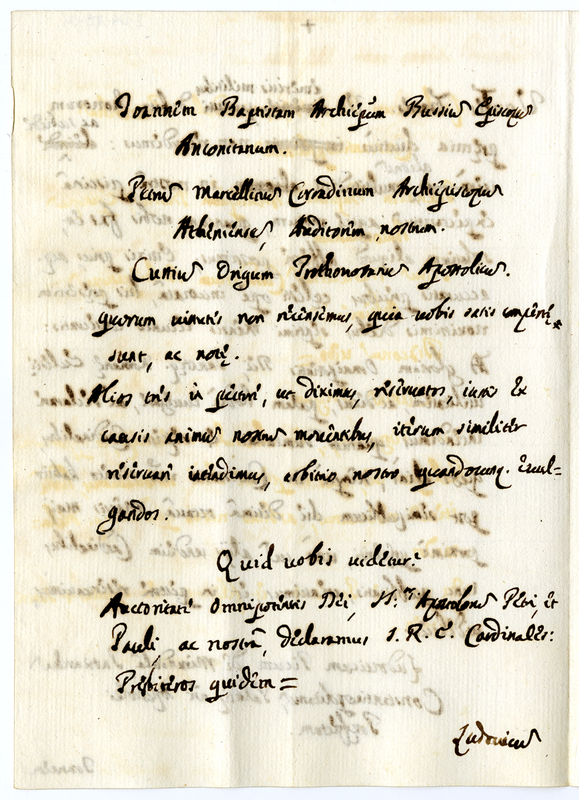 Joannem Baptistam Archiepum Bussiũ Episcopũ
Anconitanum.
Petrũ Marcellinũ Corradinum Archiepiscopũ
Atheniensẽ, Auditorem nostrum.
Curtiũ Origum Prothonotariũ Apostolicũ.
quorum virtutes non recensemus, quia vobis satis comperte
sunt, ac notę.
Alios tres in pectore, ut diximus, reservatos, iustis ex
causis animũ nostrũ moventibus, iterum similiter
reservari intendimus, arbitrio nostro quandocunq. evul=
gandos.
Quid vobis videtur?
Auctoritate Omnipotentis Dei, SS.m Apostolorũ Petri, et
Pauli, ac nostrâ, declaramus S. R. E. Cardinales:
Presbiteros quidem=
Ludovicũ